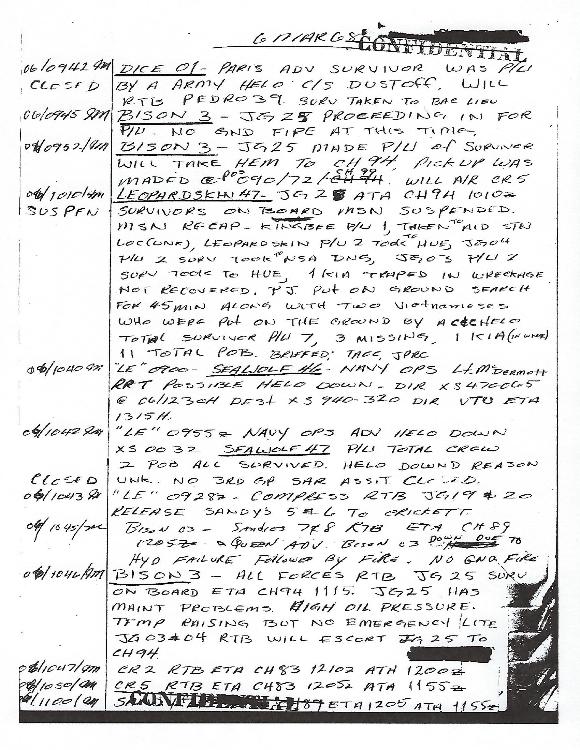 6 MAR 68
CONFIDENTIAL
06/0942 DICE 01 - PARIS ADV SURVIVOR WAS P/U
CLOSED BY A ARMY HELO C/S DUSTOFF. WILL
RTB PEDRO 39. SURV TAKEN TO BAC LIEU
06/0945 BISON 3 - JG 25 PROCEEDING IN FOR
P/U. NO GND FIRE AT THIS TIME.
06/0952 BISON 3 - JG25 MADE P/U of SURVIVOR
WILL TAKE HEM TO CH 94. PICK UP WAS
MADED @ POS 090/72/ CH 99. WILL A/R CR5
06/1010 LEOPARDSKIN 47 - JG 2 ATA CH94 1010z
SUSPEN SURVIVORS ON BOARD MSN SUSPENDED.
MSN RE-CAP - KINGBEE P/U 1, TAKEN TO AID STN
LOC(UNK), LEOPARDSKIN P/U 2 TOOK TO HUE, JG04
P/U 2 SURV TOOK TO NSA DNG, JG03 P/U 2
SURV TOOK TO HUE, 1 KIA TRAPED IN WRECKAGE
NOT RECOVERED. PJ PUT ON GROUND SEARCH
FOR 45 MIN ALONG WITH TWO VIETNAMESES
WHO WERE PUT ON THE GROUND BY A HELO
TOTAL SURVIVOR P/U 7, 3 MISSING, 1 KIA
11 TOTAL POB. BRIEFED: TACC, JPRC
06/1040 "LE" 0900 - SEAWOLF 46 - NAVY OPS Lt. McDERMOTT
RRT POSSIBLE HELO DOWN - DIR XS 470065
@ 06/1230H DEST XS 940-320 DIR VTU ETA
1315H.
06/1042 "LE" 0955z NAVY OPS ADV HELO DOWN
XS 0032 SEAWOLF 47 P/U TOTAL CREW
2 POB ALL SURVIVED. HELO DOWND REASON
CLOSED UNK. NO 3RD GP SAR ASSIT CLOSED.
06/1043 "LE" 0928z - COMPRESS RTB JG19 & 20
RELEASE SANDYS 5 & 6 TO CRICKETT
06/1045 BISON 03 - SANDIES 7&8 RTB ETA CH 89
1205z - QUEEN ADV. BISON 03 DOWN DUE TO
HYD FAILURE FOLLOWED BY FIRE. NO GND FIRE
06/1046 BISON 3 - ALL FORCES RTB JG 25 SURV
ON BOARD ETA CH94 1115. JG25 HAS
MAINT PROBLEMS. HIGH OIL PRESSURE.
TEMP RAISING BUT NO EMERGENCY LITE
JG 03 & 04 RTB WILL ESCORT JG 25 TO
CH94.
06/1047 CR2 RTB ETA CH83 1210z ATA 1200z
06/1050 CR5 RTB ETA CH83 1205z ATA 1155z
06/1100 ETA 1205 ATA 1155z
CONFIDENTIAL